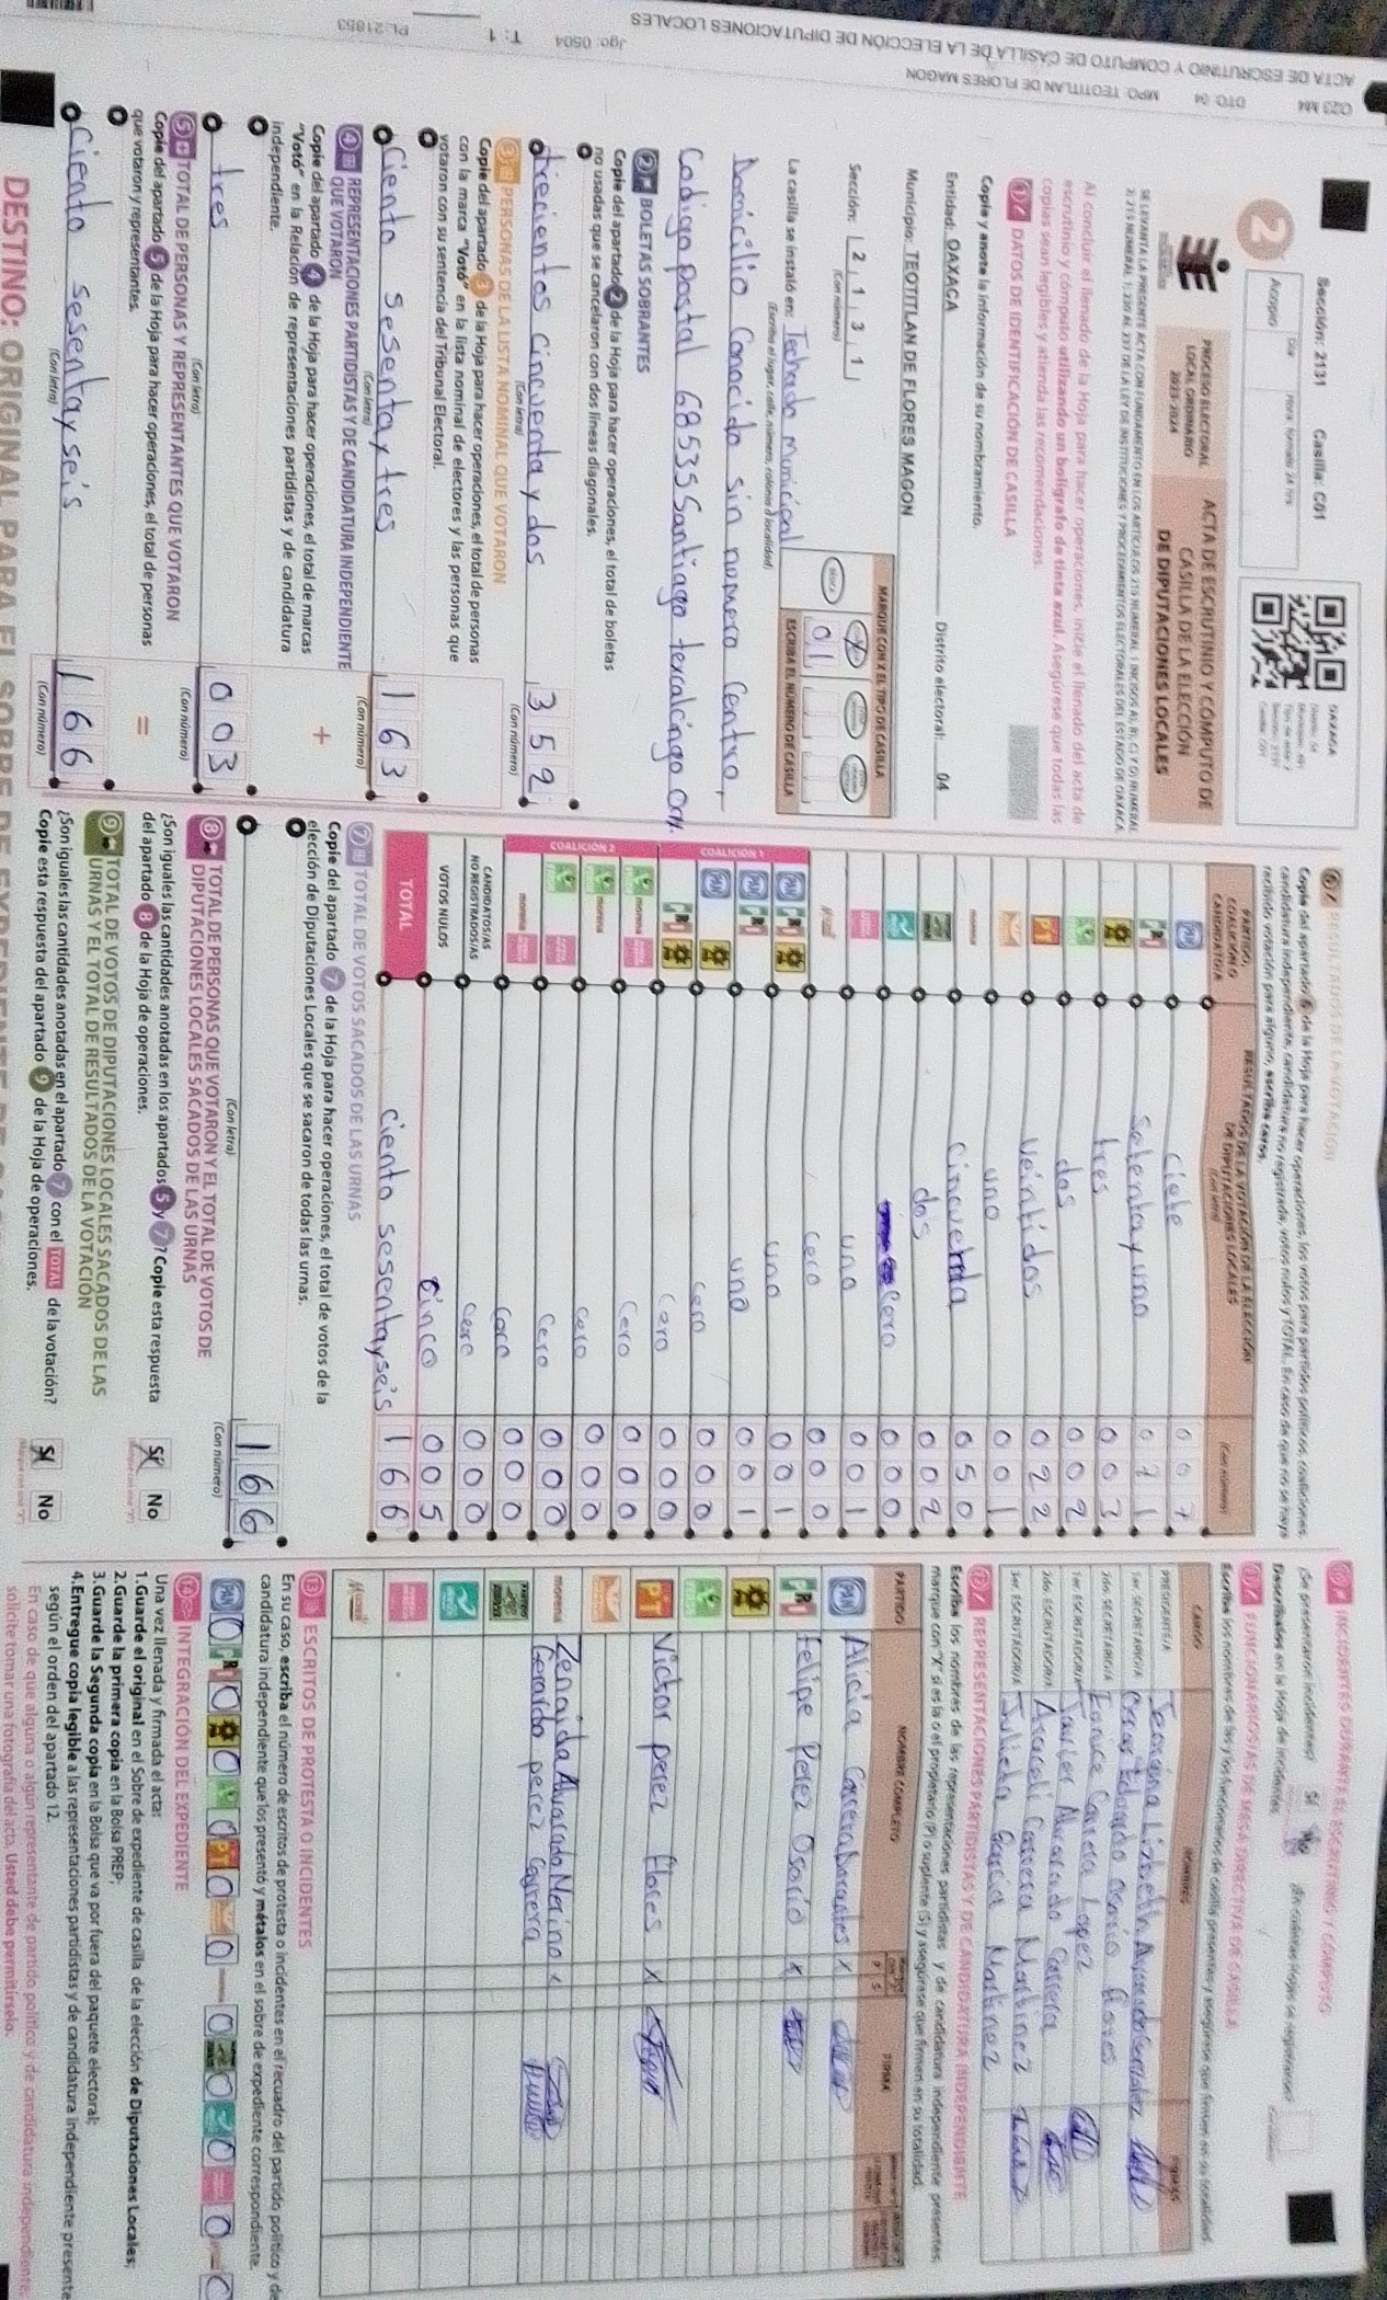 ACTA DE ESCRUTINIO Y CÓMPUTO DE CASILLA DE LA ELECCIÓN DE DIPUTACIONES LOCALES
MPO: TEOTITLAN DE FLORES MAGON
Jgo: 0504
T: 1
Sección: 2131 Casilla: C01
OAXACA
2
Acopio
PROCESO ELECTORAL
LOCAL ORDINARIO
2023-2024
ACTA DE ESCRUTINIO Y CÓMPUTO DE
CASILLA DE LA ELECCIÓN
DE DIPUTACIONES LOCALES
Al concluir el llenado de la Hoja para hacer operaciones, inicie el llenado del acta de
escrutinio y cómputo utilizando un bolígrafo de tinta azul. Asegúrese que todas las
copias sean legibles y atienda las recomendaciones.
1 DATOS DE IDENTIFICACIÓN DE CASILLA
Copie y anote la información de su nombramiento.
Entidad: OAXACA Distrito electoral: 04
Municipio: TEOTITLAN DE FLORES MAGON
Sección: 2 1 3 1
(Con número)
MARQUE CON X EL TIPO DE CASILLA
ESCRIBA EL NÚMERO DE CASILLA
01
La casilla se instaló en: Techado Municipal
(Escriba el lugar, calle, número, colonia o localidad)
Domicilio Conocido sin numero Centro,
Codigo postal 68535 Santiago texcalcingo Oax.
2 BOLETAS SOBRANTES
Copie del apartado 2 de la Hoja para hacer operaciones, el total de boletas
no usadas que se cancelaron con dos líneas diagonales.
trecientos cincuenta y dos 352
(Con letra) (Con número)
3 PERSONAS DE LA LISTA NOMINAL QUE VOTARON
Copie del apartado 3 de la Hoja para hacer operaciones, el total de personas
con la marca "Votó" en la lista nominal de electores y las personas que
votaron con su sentencia del Tribunal Electoral.
Ciento sesenta y tres 163
(Con letra) (Con número)
4 REPRESENTACIONES PARTIDISTAS Y DE CANDIDATURA INDEPENDIENTE
QUE VOTARON
Copie del apartado 4 de la Hoja para hacer operaciones, el total de marcas
"Votó" en la Relación de representaciones partidistas y de candidatura
independiente.
+
tres 003
(Con letra) (Con número)
5 TOTAL DE PERSONAS Y REPRESENTANTES QUE VOTARON
Copie del apartado 5 de la Hoja para hacer operaciones, el total de personas
que votaron y representantes.
=
Ciento sesenta y seis 166
(Con letra) (Con número)
6 RESULTADOS DE LA VOTACIÓN
Copie del apartado 6 de la Hoja para hacer operaciones, los votos para partidos políticos, coaliciones,
candidatura independiente, candidatura no registrada, votos nulos y TOTAL. En caso de que no se haya
recibido votación para alguno, escriba ceros.
PARTIDO,
COALICIÓN O
CANDIDATO/A
RESULTADOS DE LA VOTACIÓN DE LA ELECCIÓN
DE DIPUTACIONES LOCALES
(Con letra) (Con número)
PAN Ciete 007
PRI Setenta y uno 071
tres 003
dos 002
PT Veintidos 022
uno 001
morena Cincuenta 050
dos 002
Cero 000
uno 001
cero 000
COALICIÓN 1
PAN PRI uno 001
PAN PRI uno 001
PAN cero 000
PRI Cero 000
COALICIÓN 2
morena Cero 000
morena Cero 000
Cero 000
morena Cero 000
CANDIDATOS/AS
NO REGISTRADOS/AS Cero 000
VOTOS NULOS Cinco 005
TOTAL Ciento sesenta y seis 166
7 TOTAL DE VOTOS SACADOS DE LAS URNAS
Copie del apartado 7 de la Hoja para hacer operaciones, el total de votos de la
elección de Diputaciones Locales que se sacaron de todas las urnas.
166
(Con letra) (Con número)
8 TOTAL DE PERSONAS QUE VOTARON Y EL TOTAL DE VOTOS DE
DIPUTACIONES LOCALES SACADOS DE LAS URNAS
¿Son iguales las cantidades anotadas en los apartados 5 y 7? Copie esta respuesta
del apartado 8 de la Hoja de operaciones.
Sí No
9 TOTAL DE VOTOS DE DIPUTACIONES LOCALES SACADOS DE LAS
URNAS Y EL TOTAL DE RESULTADOS DE LA VOTACIÓN
¿Son iguales las cantidades anotadas en el apartado 7 con el TOTAL de la votación?
Copie esta respuesta del apartado 9 de la Hoja de operaciones.
Sí No
INCIDENTES DURANTE EL ESCRUTINIO Y CÓMPUTO
¿Se presentaron incidentes? Sí No
Descríbalos en la Hoja de incidentes.
FUNCIONARIOS/AS DE MESA DIRECTIVA DE CASILLA
CARGO NOMBRES FIRMAS
PRESIDENTE/A
1er. SECRETARIO/A
2do. SECRETARIO/A
1er. ESCRUTADOR/A Javier Alvarado Carrera
2do. ESCRUTADOR/A Araceli Carrera Martinez
3er. ESCRUTADOR/A Julieta Garcia Martinez
12 REPRESENTACIONES PARTIDISTAS Y DE CANDIDATURA INDEPENDIENTE
Escriba los nombres de las representaciones partidistas y de candidatura independiente presentes,
marque con "X" si es la o el propietario (P) o suplente (S) y asegúrese que firmen en su totalidad.
PARTIDO NOMBRE COMPLETO FIRMA
PAN Alicia Carrera x
PRI Felipe Perez Osorio x
PT Victor perez flores x
morena Zenaida Alvarado Merino x
Gerardo perez Carrera
13 ESCRITOS DE PROTESTA O INCIDENTES
En su caso, escriba el número de escritos de protesta o incidentes en el recuadro del partido político y de
candidatura independiente que los presentó y métalos en el sobre de expediente correspondiente.
14 INTEGRACIÓN DEL EXPEDIENTE
Una vez llenada y firmada el acta:
1.Guarde el original en el Sobre de expediente de casilla de la elección de Diputaciones Locales;
2.Guarde la primera copia en la Bolsa PREP;
3.Guarde la Segunda copia en la Bolsa que va por fuera del paquete electoral;
4.Entregue copia legible a las representaciones partidistas y de candidatura independiente presente
según el orden del apartado 12.
En caso de que alguna o algún representante de partido político y de candidatura independiente,
solicite tomar una fotografía del acta. Usted debe permitírselo.